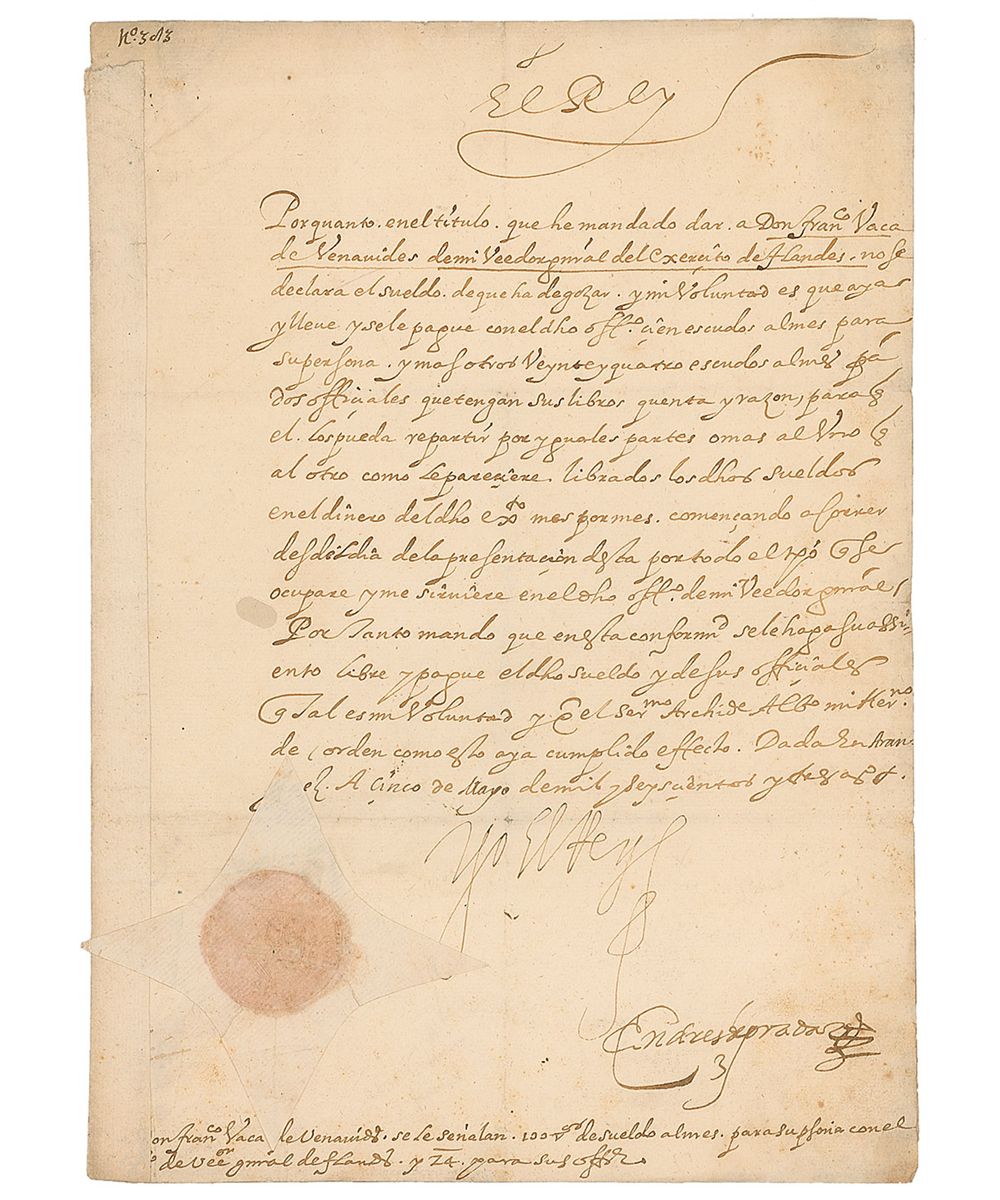 No. 383
El Rey
Por quanto. en el titulo. que he mandado dar. a Don fran.co Vaca
de Venauides de mi Veedor gnrãl del Exercito de flandes. no se
declara el sueldo. de que ha de gozar. y mi Voluntad es que aya
y lleue y se le pague con el dho off.o cien escudos al mes para
su persona. y mas otros Veynte y quatro escudos al mes pã
dos officiales que tengan sus libros quenta y razon, para q̃
el. los pueda repartir por yguales partes o mas al Vno q̃
al otro como le pareciere. librados los dhos sueldos
en el dinero del dho ex.to mes por mes. començando a correr
desde el dia de la presentacion desta por todo el tpõ q̃ se
ocupare y me siruiere en el dho off.o de mi Veedor gnrãl /
Por tanto mando que en esta conformd se le haga su assi-
ento libre y pague el dho sueldo y de sus officiales
q̃ tal es mi Voluntad y q̃ el Ser.mo Archidẽ Alb.to mi Her.no
de orden como esto aya cumplido effecto. Dada En Aran-
ez. A cinco de Mayo de mil y seyscientos y tres aõs.
Yo El Rey
Andres de prada
on fran.co Vaca de Venauides. se le señalan. 100 de sueldo al mes. para su psona con el
de Vee.or gnrãl de flands. y 24. para sus offes.